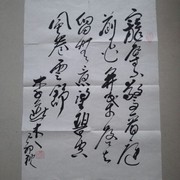 寵辱不驚看庭
前花開花落去
留無意望碧空
風卷雲舒